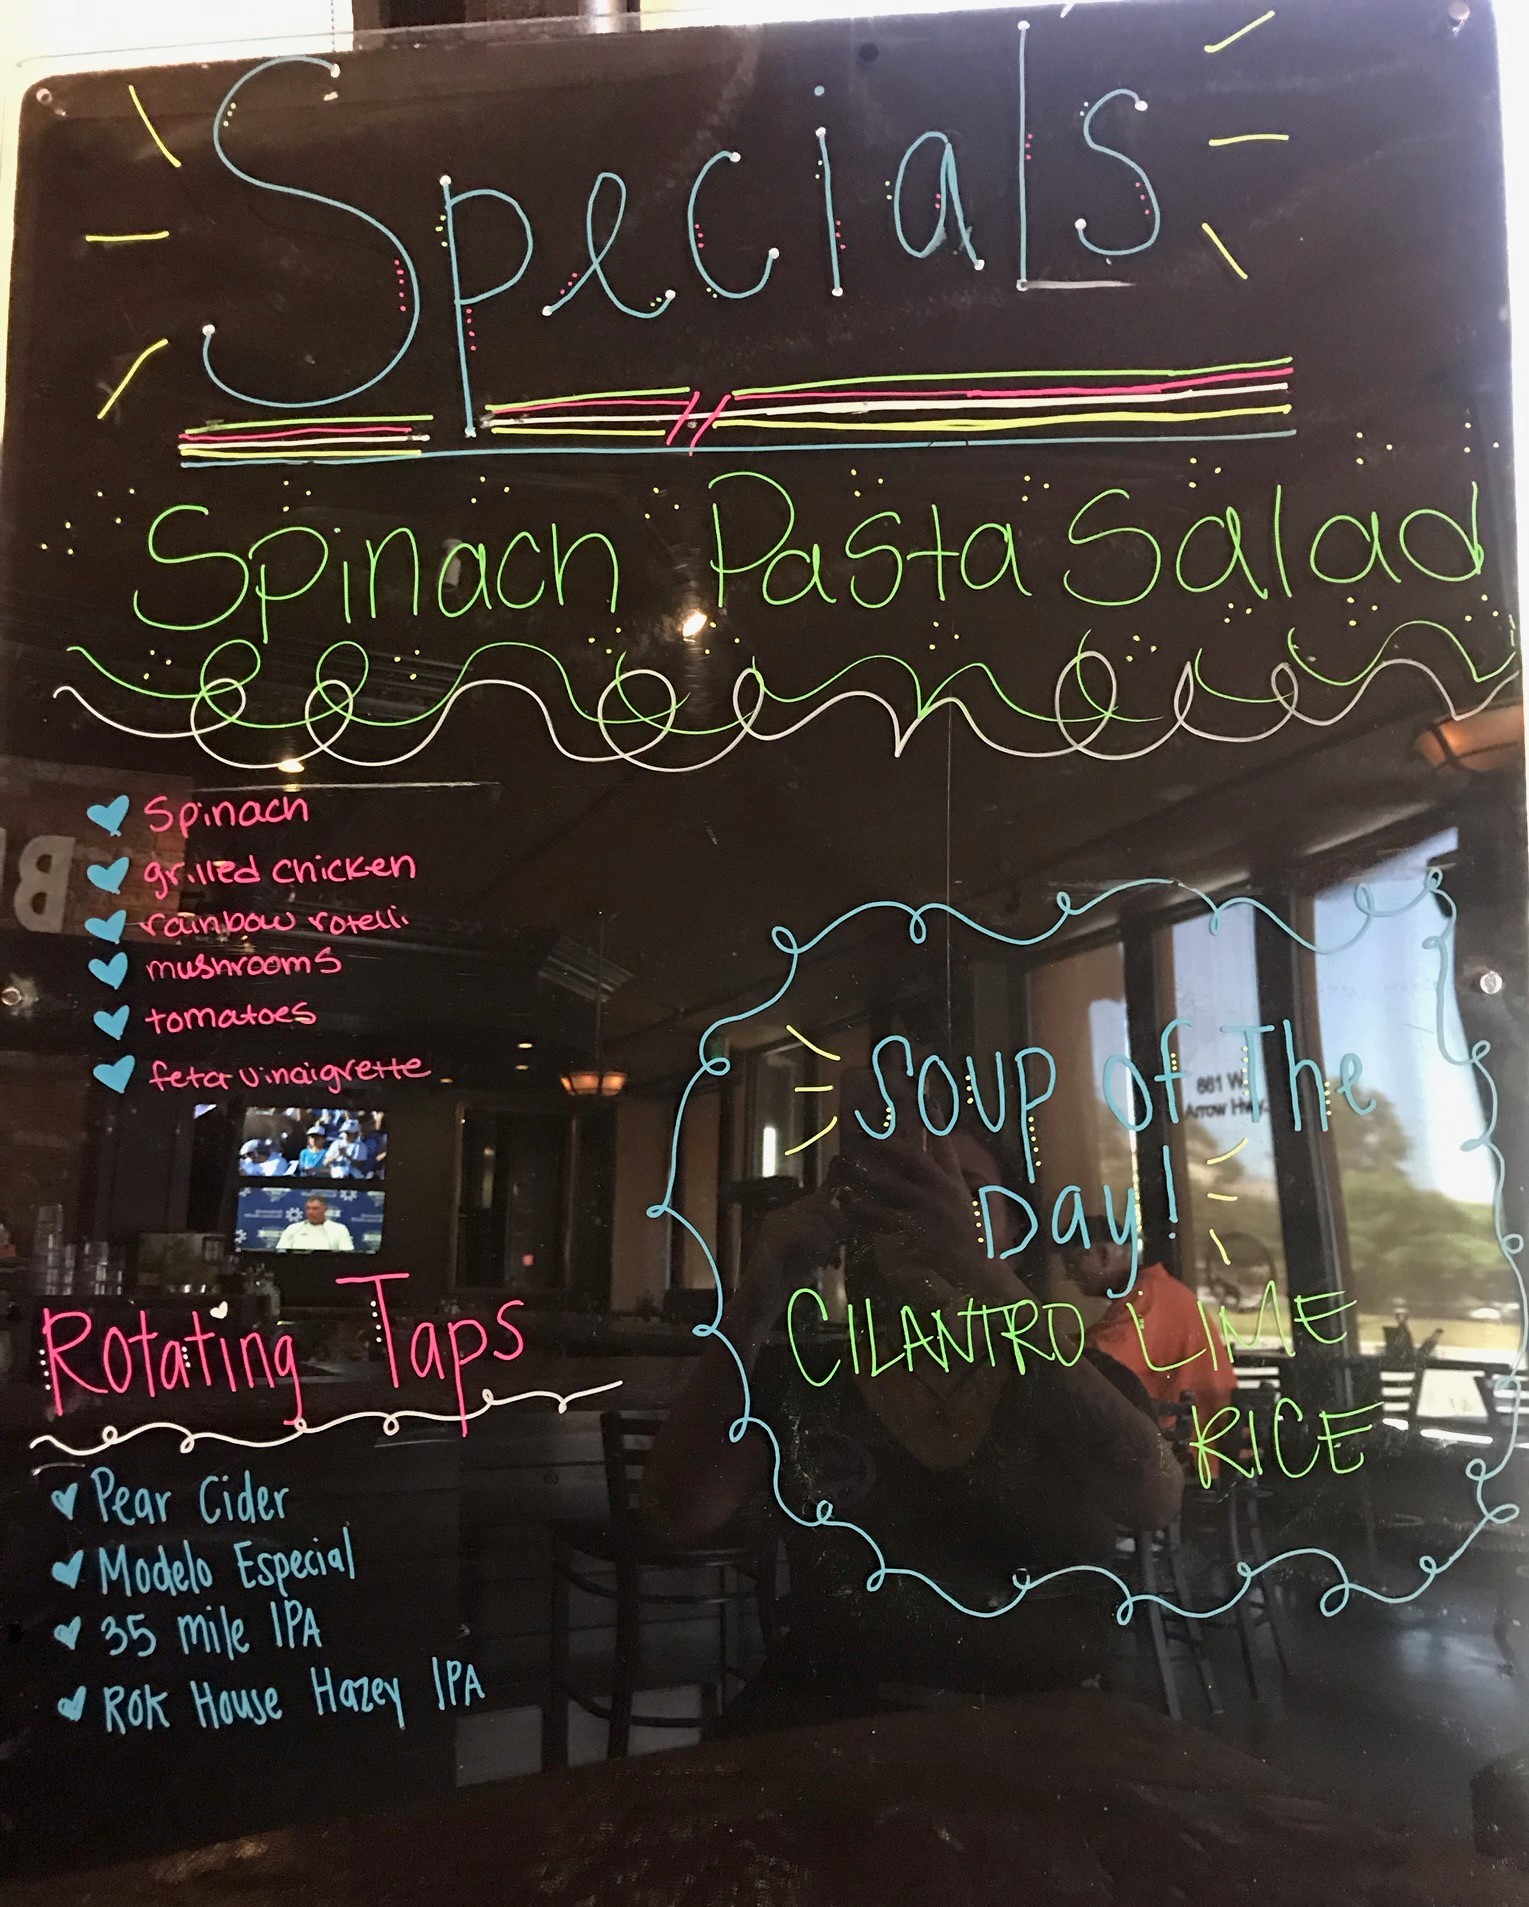 Specials
Spinach Pasta Salad
Spinach
grilled chicken
rainbow rotelli
mushrooms
tomatoes
feta vinaigrette
Soup of The
Day!
CILANTRO LIME
RICE
661 W
Arrow Hwy.
Rotating Taps
Pear Cider
Modelo Especial
35 mile IPA
ROK House Hazey IPA